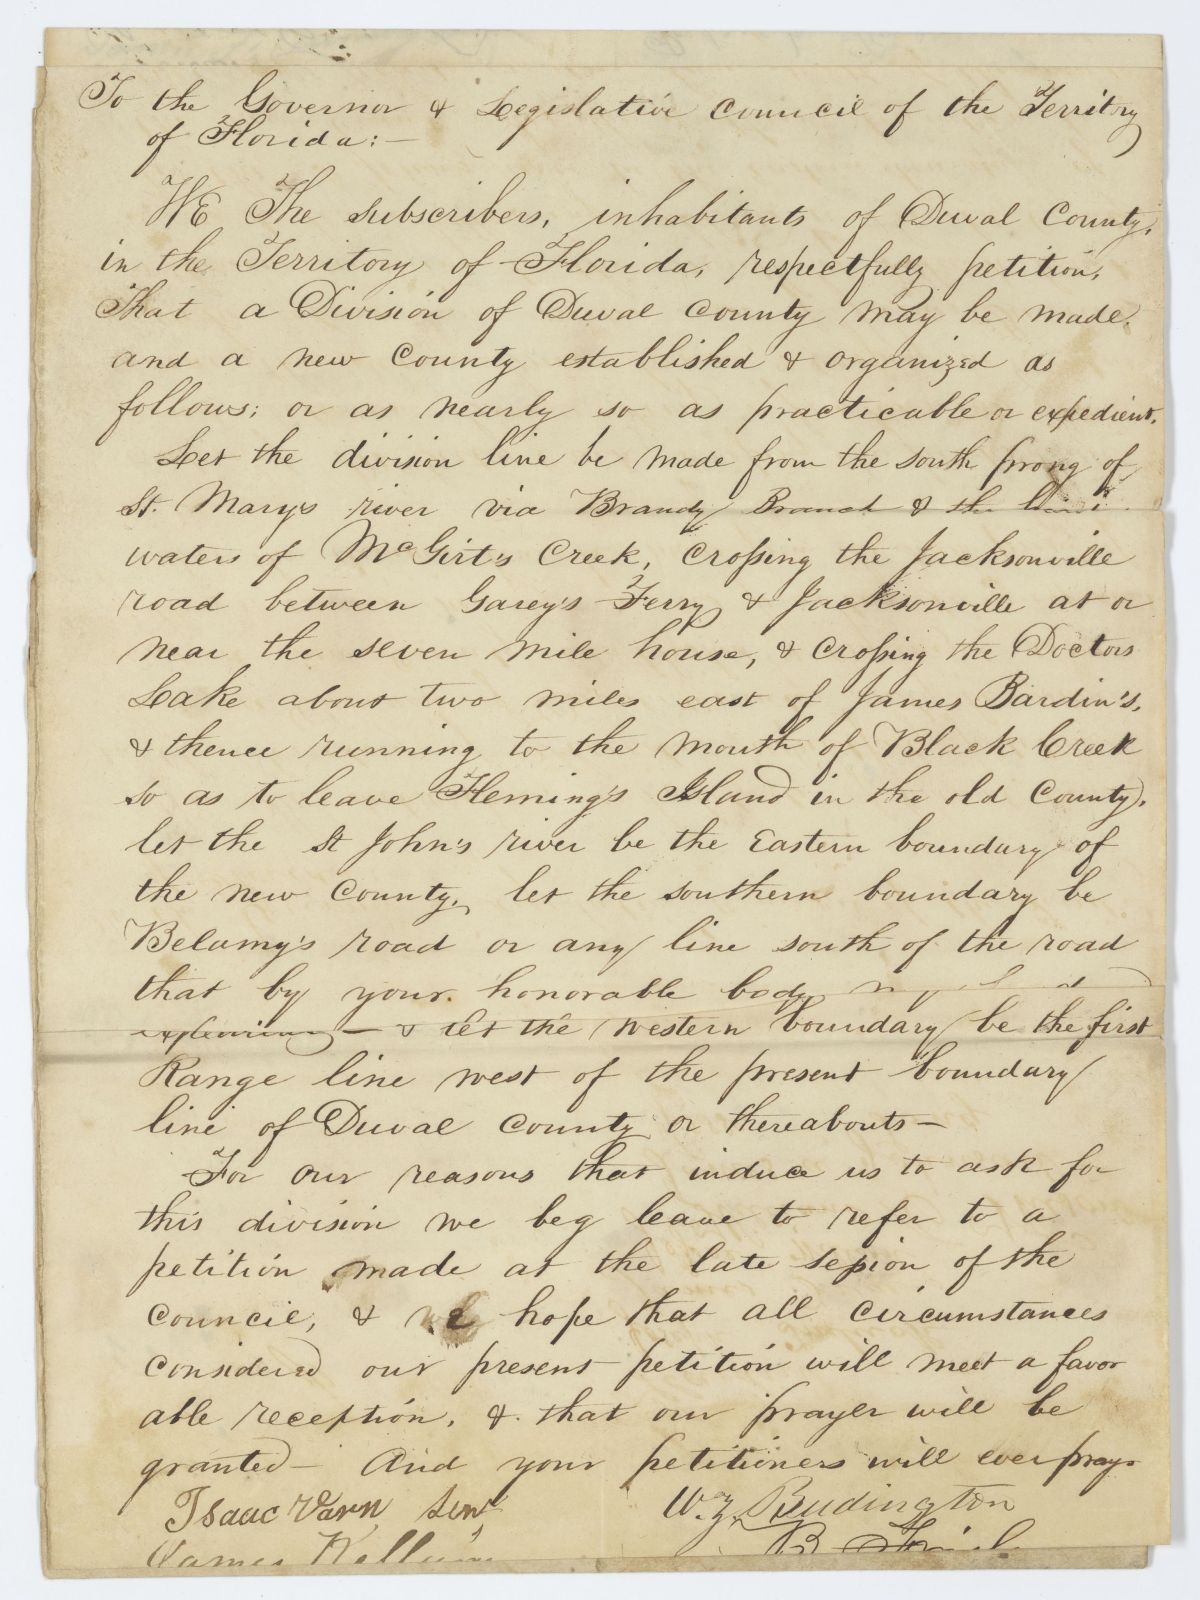 To the Governor & Legislative Council of the Territory
of Florida:—
WE The subscribers, inhabitants of Duval County,
in the Territory of Florida, respectfully petition,
That a Division of Duval County may be made,
and a new County established & organized as
follows; or as nearly so as practicable or expedient.
Let the division line be made from the south prong of
St. Mary's river via Brandy Branch & the
waters of McGirt's Creek, crossing the Jacksonville
road between Garey's Ferry & Jacksonville at or
near the seven mile house, & crossing the Doctors
Lake about two miles east of James Bardin's,
& thence running to the mouth of Black Creek
so as to leave Fleming's Island in the old County.
let the St John's river be the Eastern boundary of
the new County, let the southern boundary be
Belamy's road or any line south of the road
that by your honorable body
& let the western boundary be the first
Range line west of the present boundary
line of Duval County or thereabouts—
For our reasons that induce us to ask for
this division we beg leave to refer to a
petition made at the late session of the
Council, & we hope that all circumstances
considered our present petition will meet a favor
able reception, & that our prayer will be
granted— And your petitioners will ever pray.
Isaac Varn Senr W. Z. Budington
James B.